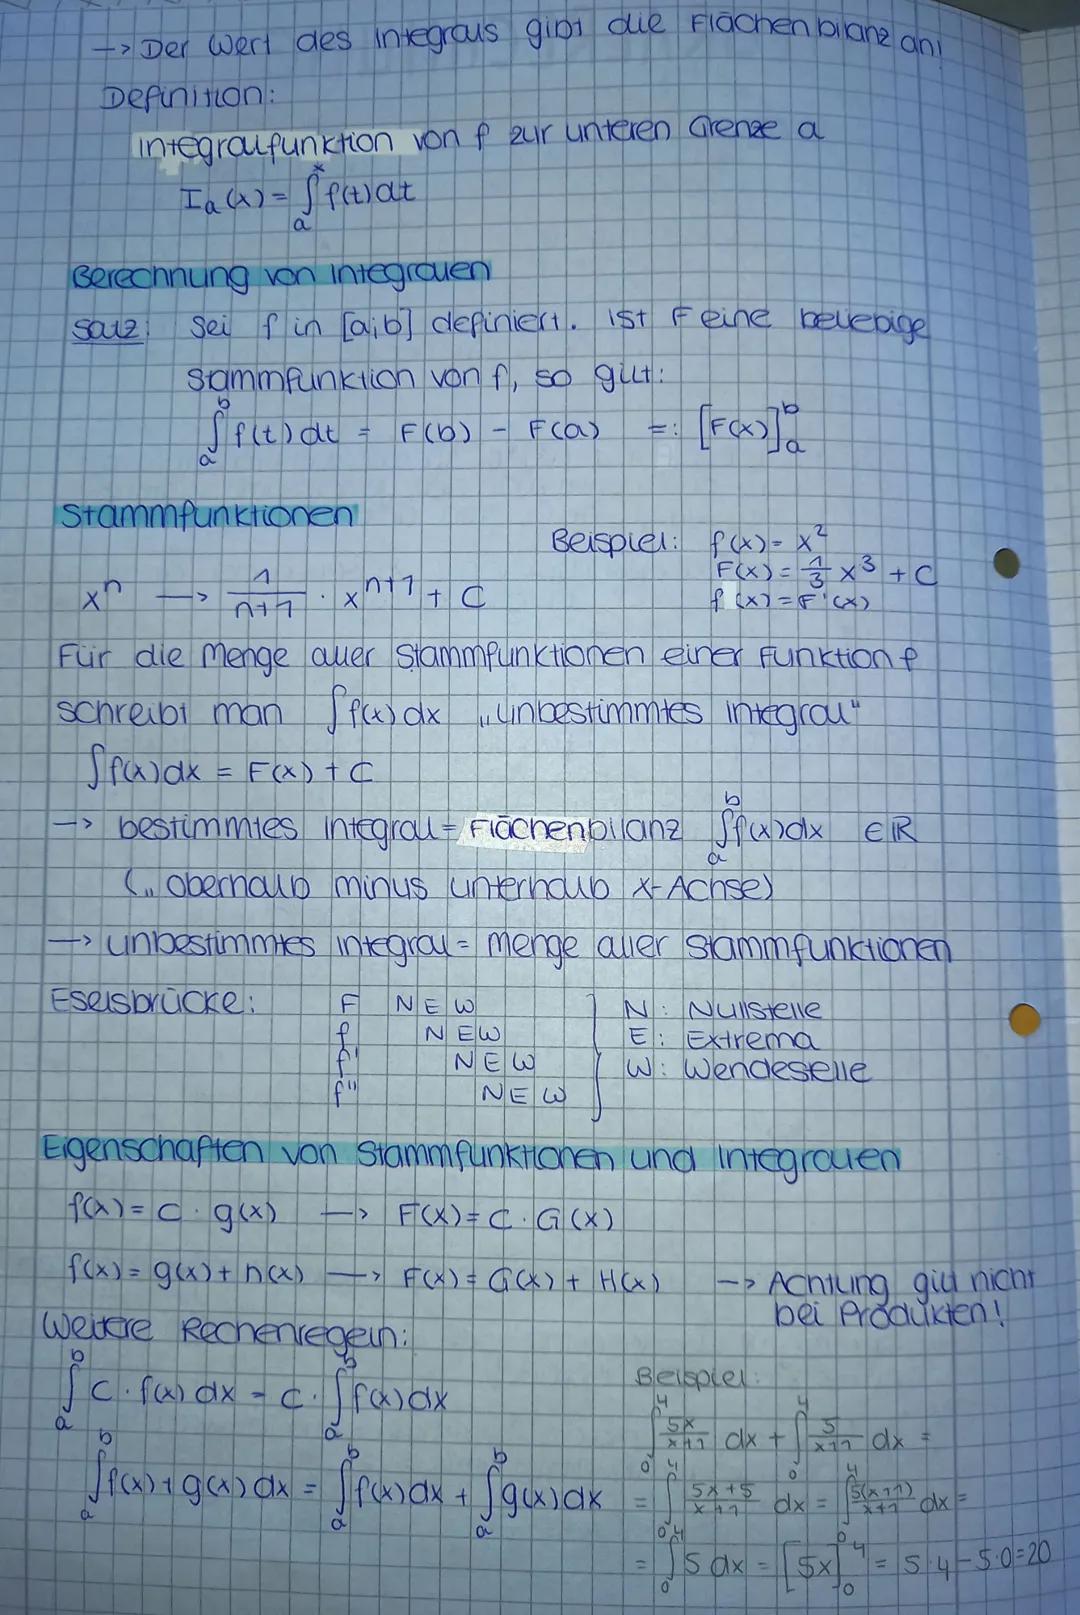 -> Der Wert des Integrals gibt die Flächenbilanz an!
Definition:
Integralfunktion von f zur unteren Grenze a
Iₐ(x) = ∫ₐˣ f(t) dt
Berechnung von Integralen
Satz: Sei f in [a;b] definiert. Ist F eine beliebige
Stammfunktion von f, so gilt:
∫ₐᵇ f(t) dt = F(b) - F(a) =: [F(x)]ₐᵇ
Stammfunktionen
Beispiel: f(x) = x²
F(x) = 1/3 x³ + C
f(x) = F'(x)
xⁿ -> 1/(n+1) · xⁿ⁺¹ + C
Für die Menge aller Stammfunktionen einer Funktion f
schreibt man ∫ f(x) dx „Unbestimmtes Integral"
∫ f(x) dx = F(x) + C
-> bestimmtes Integral = Flächenbilanz ∫ₐᵇ f(x) dx ∈ ℝ
(„ oberhalb minus unterhalb x-Achse)
-> unbestimmtes Integral = Menge aller Stammfunktionen
Eselsbrücke: F N E W
f N E W
f' N E W
f'' N E W
N: Nullstelle
E: Extrema
W: Wendestelle
Eigenschaften von Stammfunktionen und Integralen
f(x) = c · g(x) -> F(x) = c · G(x)
f(x) = g(x) + h(x) -> F(x) = G(x) + H(x) -> Achtung gilt nicht
bei Produkten!
Weitere Rechenregeln:
∫ₐᵇ c · f(x) dx = c · ∫ₐᵇ f(x) dx
∫ₐᵇ f(x) + g(x) dx = ∫ₐᵇ f(x) dx + ∫ₐᵇ g(x) dx
Beispiel:
∫₀⁴ 5x/(x+1) dx + ∫₀⁴ 5/(x+1) dx =
= ∫₀⁴ (5x+5)/(x+1) dx = ∫₀⁴ 5(x+1)/(x+1) dx =
= ∫₀⁴ 5 dx = [5x]₀⁴ = 5·4 - 5·0 = 20